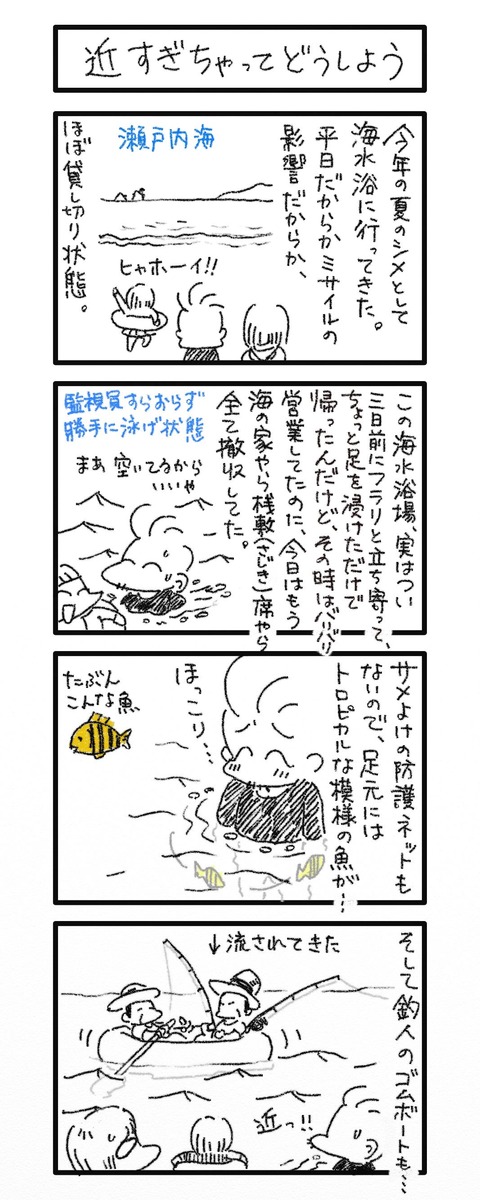 近すぎちゃってどうしよう
今年の夏のシメとして
海水浴に行ってきた。
平日だからかミサイルの
影響だからか、
瀬戸内海
ヒャホーイ!!
ほぼ貸し切り状態。
この海水浴場、実はつい
三日前にフラリと立ち寄って、
ちょっと足を浸けただけで
帰ったんだけど、その時はバリバリ
営業してたのに、今日はもう
海の家やら桟敷(さじき)席やら
全て撤収してた。
監視員すらおらず
勝手に泳げ状態
まあ空いてるから
いいや
サメよけの防護ネットも
ないので、足元には
トロピカルな模様の魚が…
ほっこり…
たぶん
こんな魚
そして釣人のゴムボートも…
↓流されてきた
近っ!!